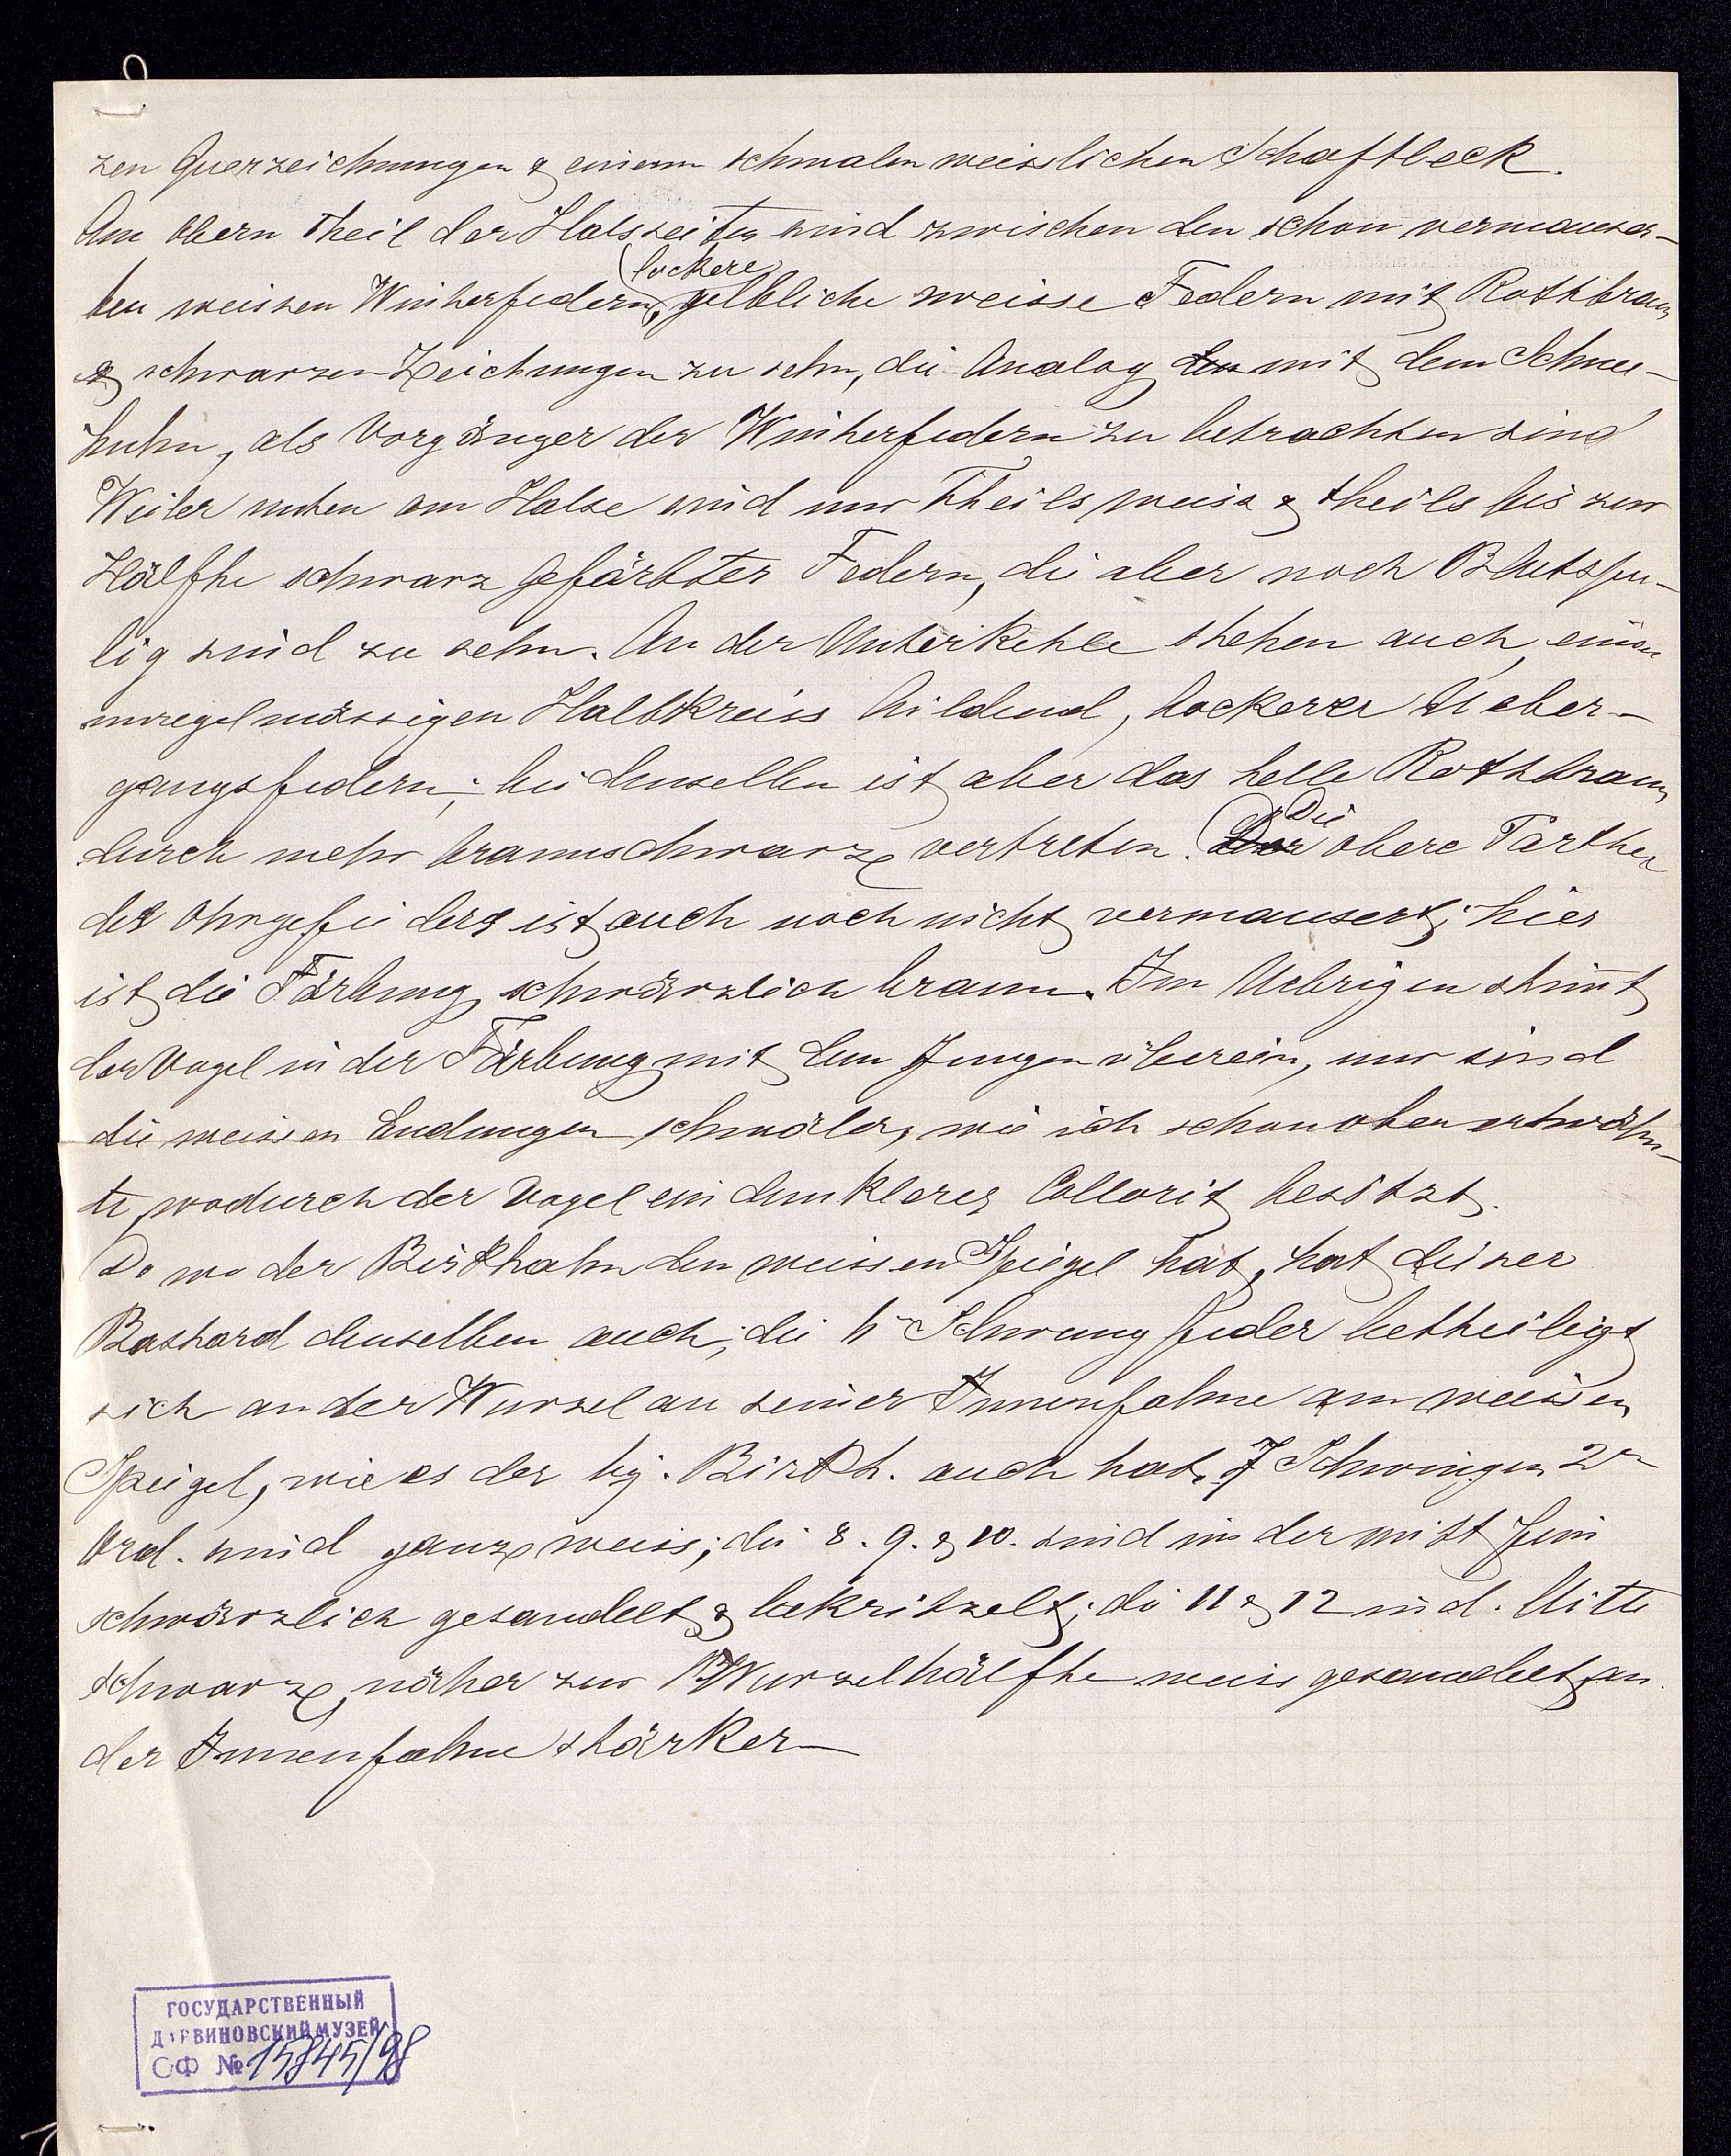 zen Querzeichnungen & einem schmalen weisslichen Schaftleck.
Am obern Theil der Halsseiten sind zwischen den schon vermauser-
lockere
ten weissen Winterfedern, gelbliche weisse Federn mit Rothbraun
& schwarzen Zeichnungen zu sehn, die Analog den mit dem Schnee-
huhn, als Vorgänger der Winterfedern zu betrachten sind
Weiter unten am Halse sind nur theils weiss & theils bis zur
Hälfte schwarz gefärbter Federn, die aber noch Blutspu-
lig sind zu sehn. An der Unterkehle stehen auch, einen
unregelmässigen Halbkreiss bildend, lockerer Ueber-
gangsfedern; bei denselben ist aber das helle Rothbraun
Die
durch mehr braunschwarz vertreten. Der obere Parthee
des Ohrgefieders ist auch noch nicht vermausert; hier
ist die Färbung schwärzlich braun. Im Uebrigen stimt
der Vogel in der Färbung mit dem Jungen überein, nur sind
die weissen Endungen schmäler, wie ich schon oben erwähn-
te, wodurch der Vogel ein dunkleres Collorit besitzt.
Da wo der Birkhahn den weissen Spiegel hat, hat dieser
Bastard denselben auch; die Schwungfeder betheiligt
sich an der Wurzel an seiner Innenfahne am weissen
Spiegel, wie es der Birkh. auch hat. 7 Schwingen 2r
Ord. sind ganz weiss; die 8. 9. & 10. sind in der mitt fein
schwärzlich gesandelt & bekritzelt; di 11 & 12 in d. Mitte
schwarz, näher zur Wurzelhälfte weiss gesandelt, an
der Innenfahne stärker—
ГОСУДАРСТВЕННЫЙ
ДАРВИНОВСКИЙ МУЗЕЙ
СФ № 15845/98